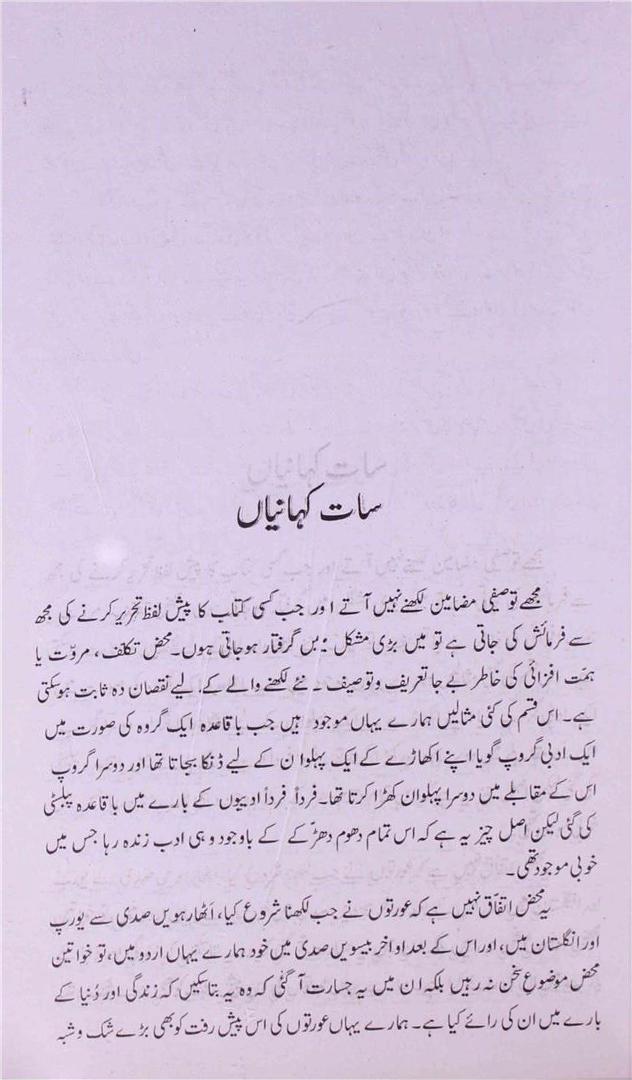 سات کہانیاں
مجھے توصیفی مضامین لکھنے نہیں آتے اور جب کسی کتاب کا پیش لفظ تحریر کرنے کی مجھ
سے فرمائش کی جاتی ہے تو میں بڑی مشکل میں گرفتار ہو جاتی ہوں۔ محض تکلف، مروّت یا
ہمّت افزائی کی خاطر بے جا تعریف و توصیف۔ نئے لکھنے والے کے لیے نقصان دہ ثابت ہو سکتی
ہے۔ اس قسم کی کئی مثالیں ہمارے یہاں موجود ہیں جب باقاعدہ ایک گروہ کی صورت میں
ایک ادبی گروپ گویا اپنے اکھاڑے کے ایک پہلوان کے لیے ڈنکا بجاتا تھا اور دوسرا گروپ
اس کے مقابلے میں دوسرا پہلوان کھڑا کرتا تھا۔ فرداً فرداً ادیبوں کے بارے میں باقاعدہ پبلسٹی
کی گئی لیکن اصل چیز یہ ہے کہ اس تمام دھوم دھڑکے کے باوجود وہی ادب زندہ رہا جس میں
خوبی موجود تھی۔
یہ محض اتفاق نہیں ہے کہ عورتوں نے جب لکھنا شروع کیا، اٹھارہویں صدی سے یورپ
اور انگلستان میں، اور اس کے بعد اواخر بیسویں صدی میں خود ہمارے یہاں اردو میں، تو خواتین
محض موضوعِ سخن نہ رہیں بلکہ ان میں یہ جسارت آ گئی کہ وہ یہ بتا سکیں کہ زندگی اور دُنیا کے
بارے میں ان کی رائے کیا ہے۔ ہمارے یہاں عورتوں کی اس پیش رفت کو بھی بڑے شک و شبہ